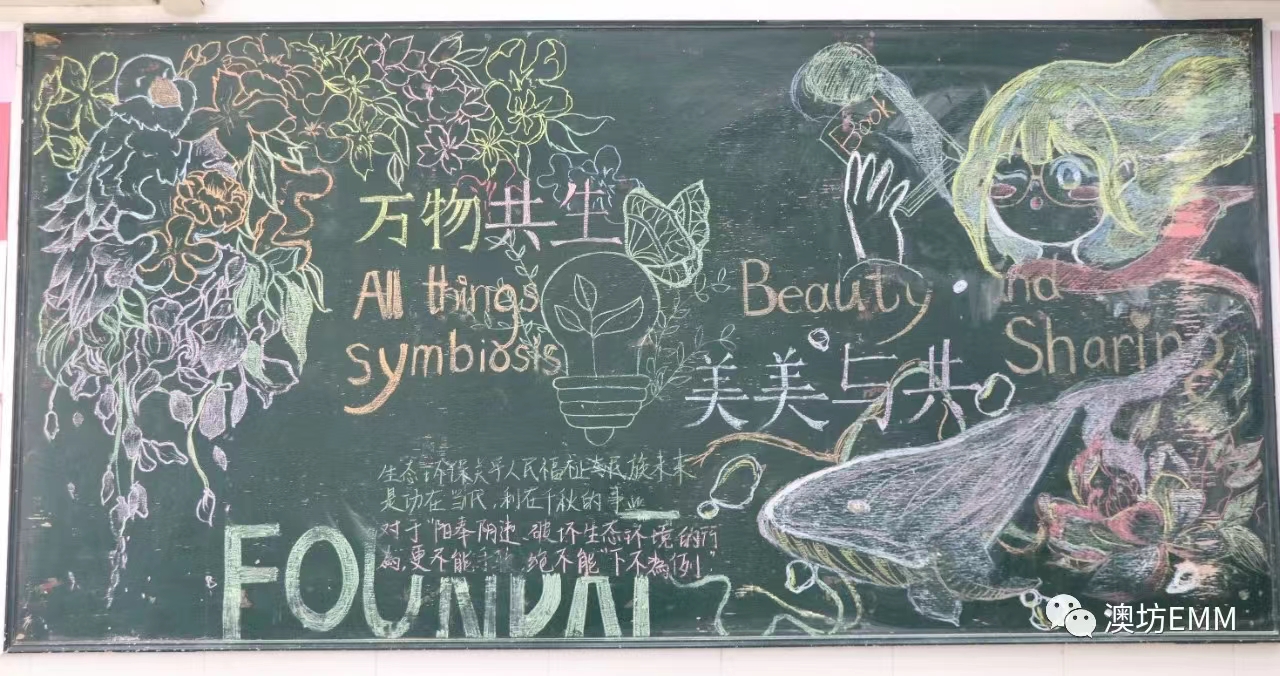 万物共生
All things
symbiosis
Book
Beauty and
Sharing
美美与共
生态环保关乎人民福祉与民族未来
是功在当代,利在千秋的事业
对于"阳奉阴违、破坏生态环境的所
更不能手软,绝不能"下不為例"
FOUNDAT
澳坊EMM